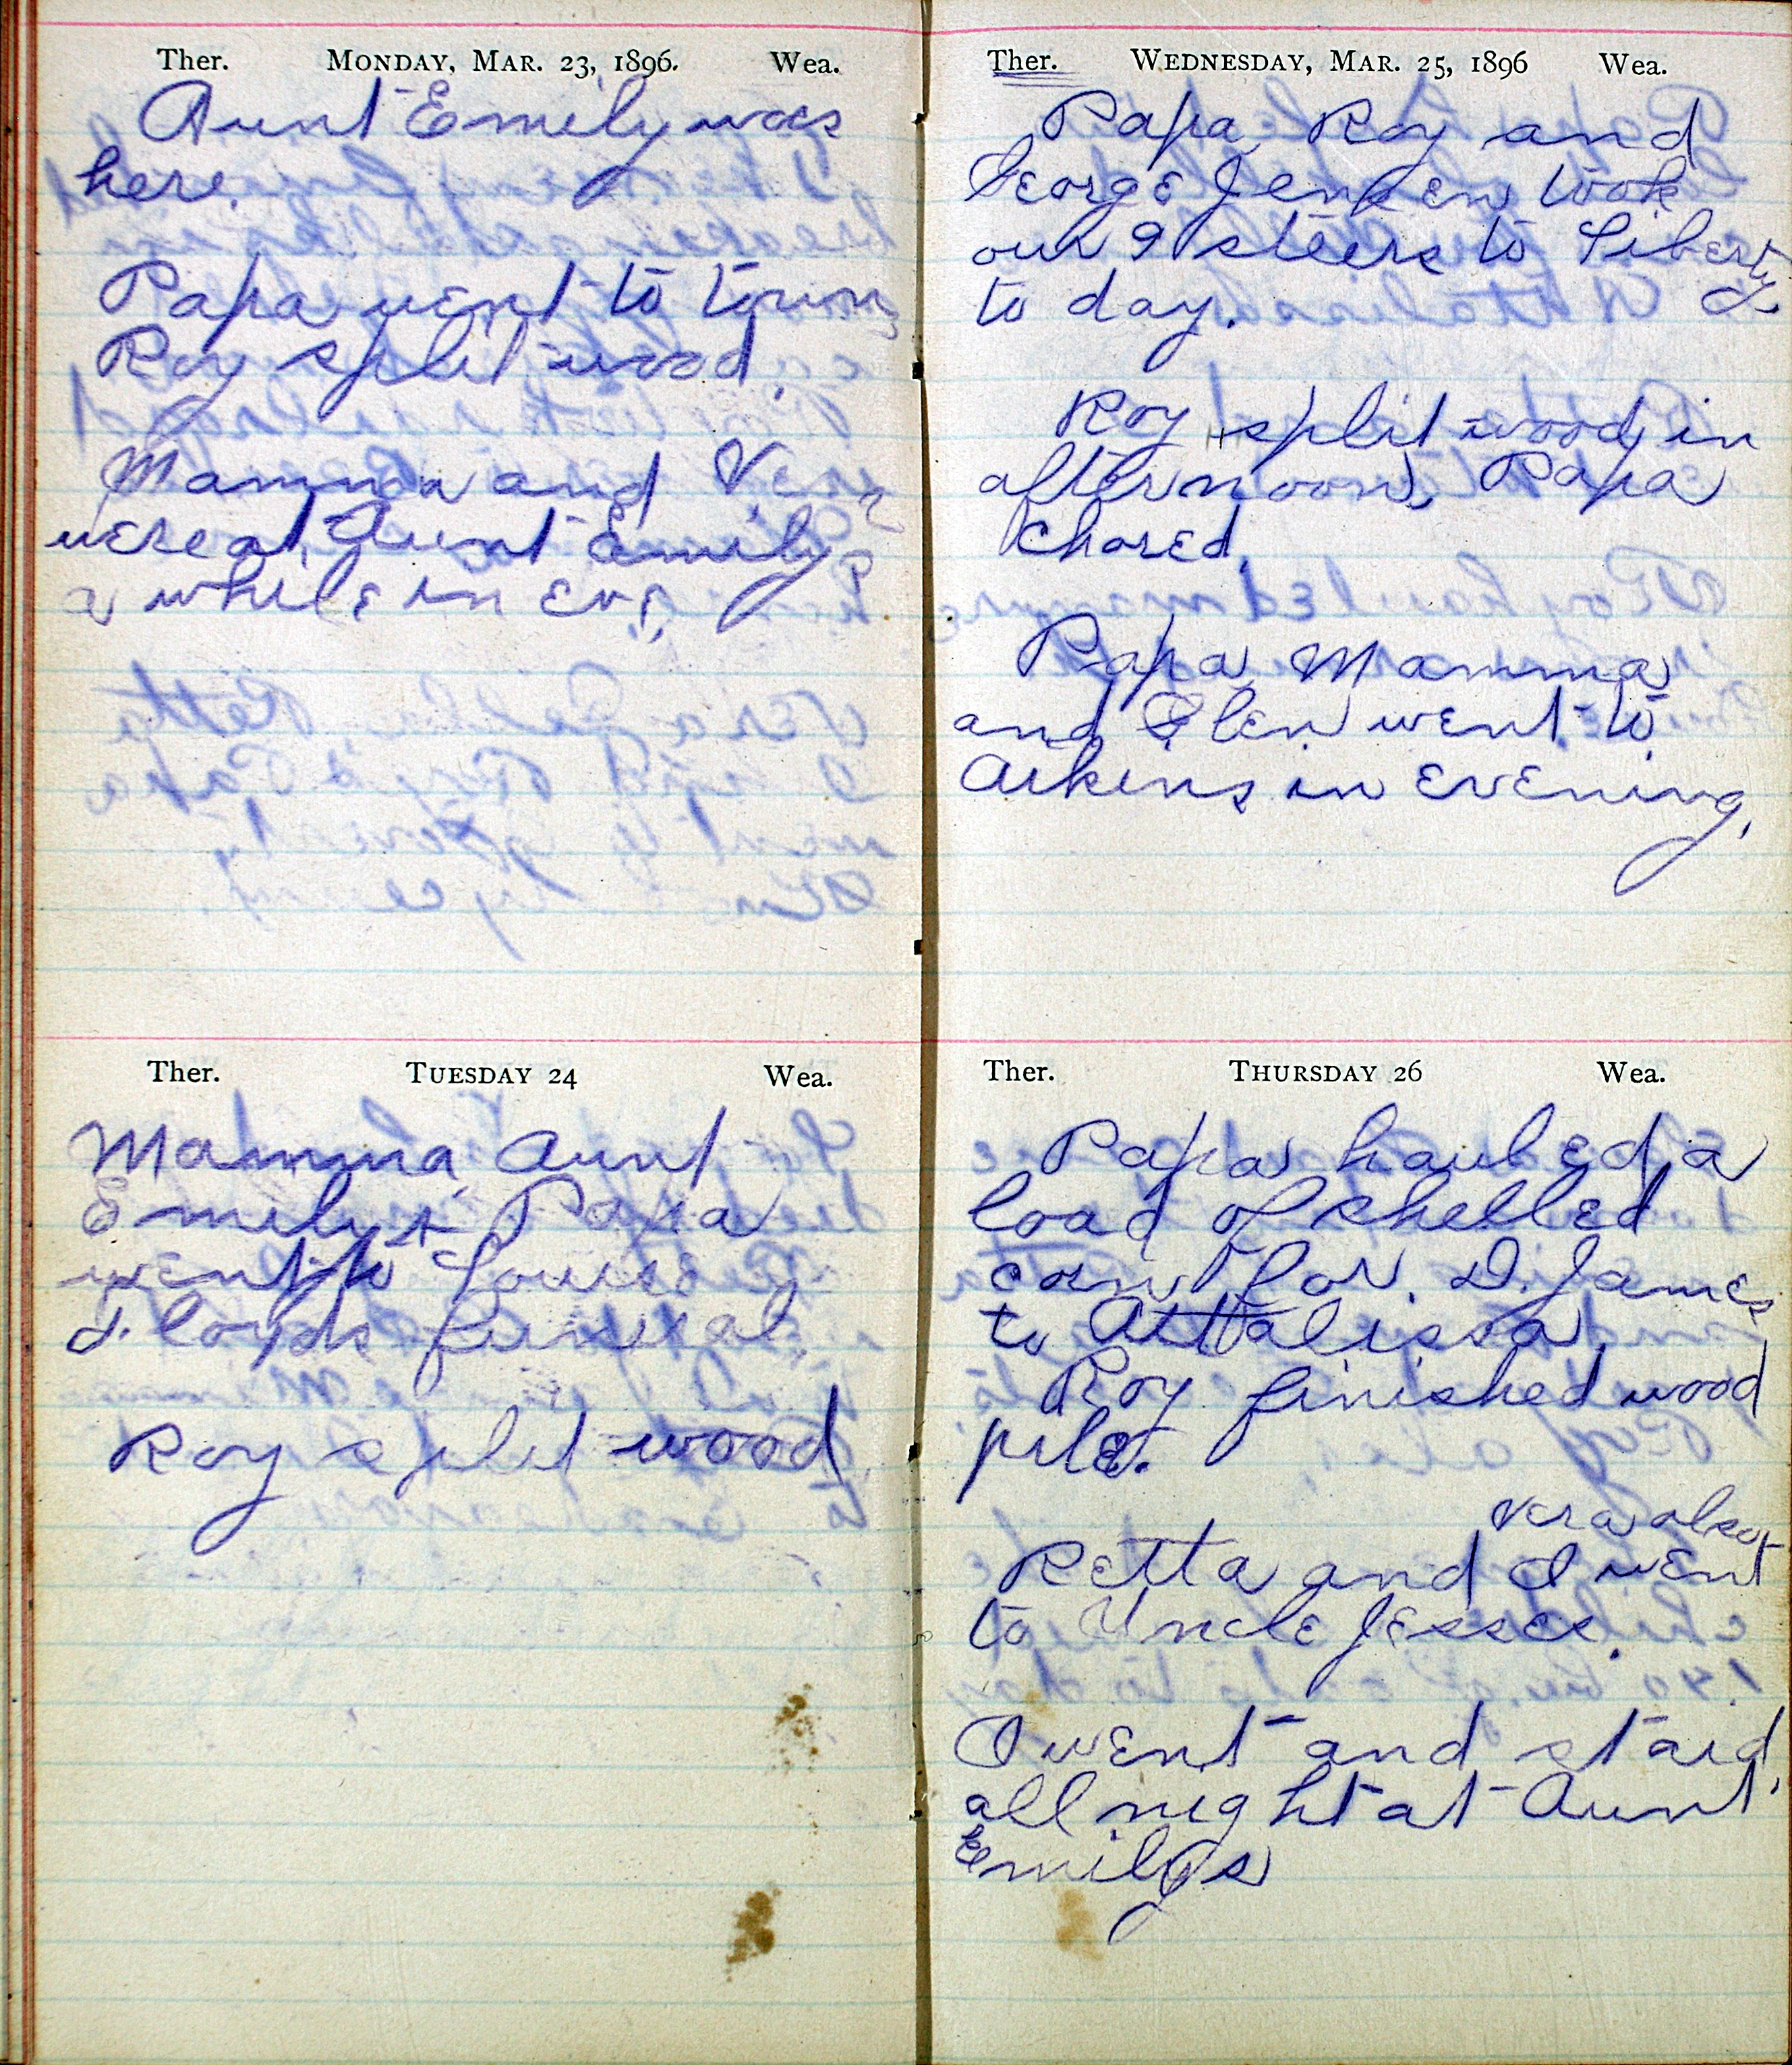 Ther. MONDAY, MAR. 23, 1896. Wea.
Aunt Emily was
here.
Papa went to town
Roy split wood.
Mamma and Vera
were at Aunt Emily
a while in eve.
Ther. TUESDAY 24 Wea.
Mamma, Aunt
Emily + Papa
went to Louise
Floyds funeral.
Roy split wood
Ther. WEDNESDAY, MAR. 25, 1896 Wea.
Papa, Roy and
George Jensen took
our 9 steers to Liberty
to day.
Roy split wood in
afternoon, Papa
chored.
Papa Mamma
and Glen went to
Aikins in evening,
Ther. THURSDAY 26 Wea.
Papa hauled a
load of shelled
corn for D. James
to Attalissa.
Roy finished wood
pile.
Vera also
Retta and I went
to Uncle Jesses.
I went and staid
all night at Aunt
Emilys